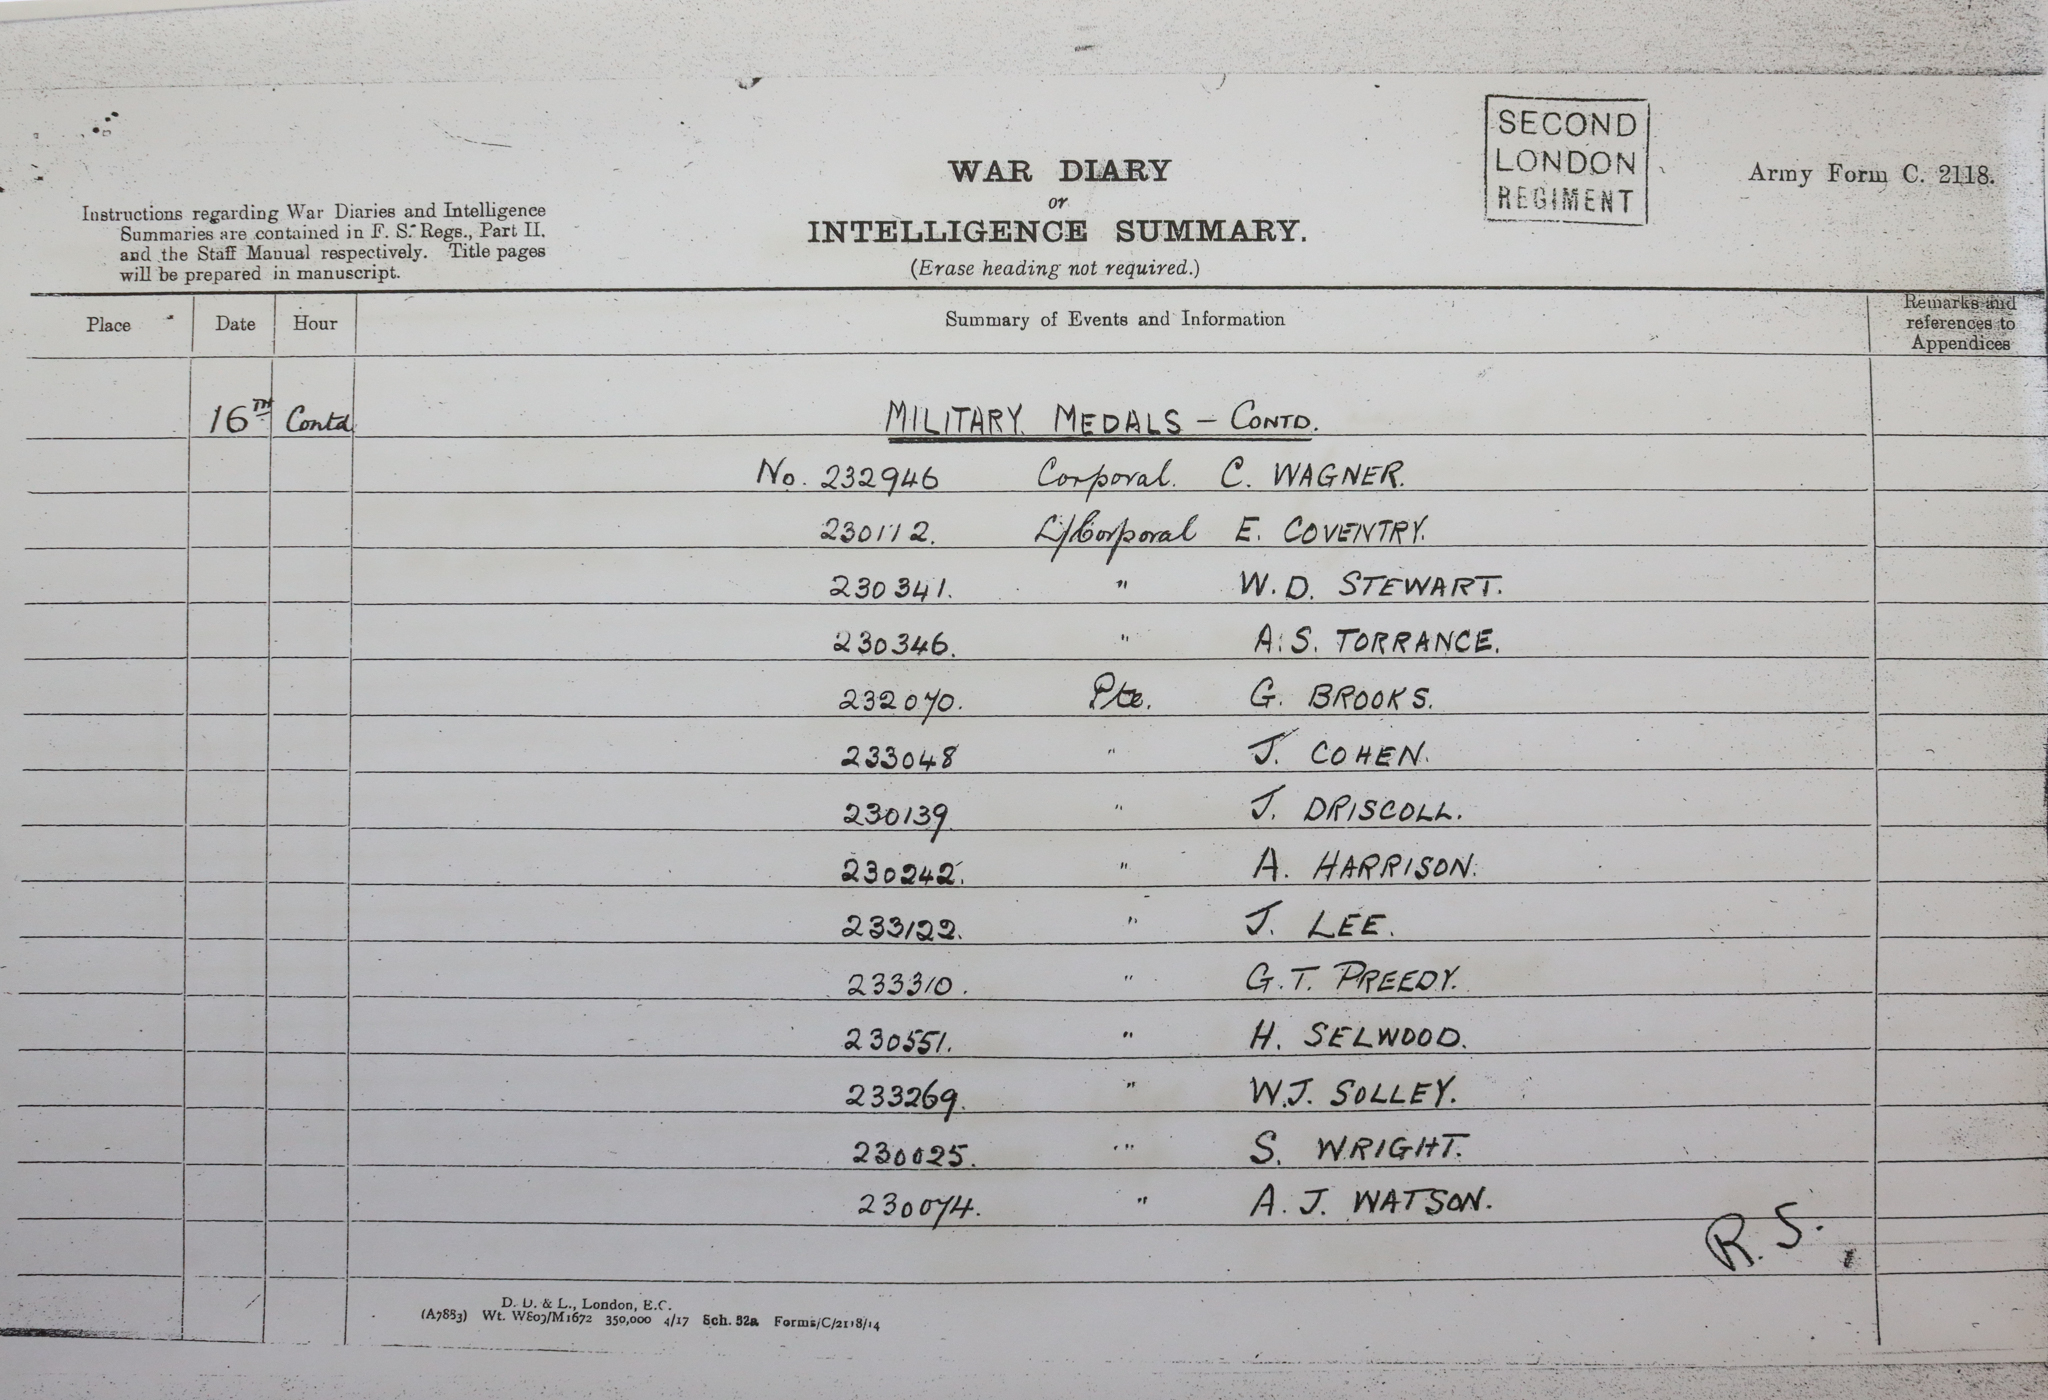 SECOND
LONDON
REGIMENT
Army Form C. 2118.
WAR DIARY
or
INTELLIGENCE SUMMARY.
(Erase heading not required.)
Instructions regarding War Diaries and Intelligence
Summaries are contained in F. S. Regs., Part II.
and the Staff Manual respectively. Title pages
will be prepared in manuscript.
Place Date Hour Summary of Events and Information Remarks and
references to
Appendices
16TH Contd MILITARY MEDALS - CONTD.
No. 232946 Corporal. C. WAGNER.
230112. L/Corporal E. COVENTRY.
230341. " W.D. STEWART.
230346. " A.S. TORRANCE.
232070. Pte. G. BROOKS.
233048 " J. COHEN.
230139 " J. DRISCOLL.
230242. " A. HARRISON.
233122. " J. LEE.
233310. " G.T. PREEDY.
230551. " H. SELWOOD.
233269. " W.J. SOLLEY.
230025. " S. WRIGHT.
230074. " A. J. WATSON.
R. S.
D. D. & L., London, E.C.
(A7883) Wt. W809/M1672 350,000 4/17 Sch. 52a Forms/C/2118/14